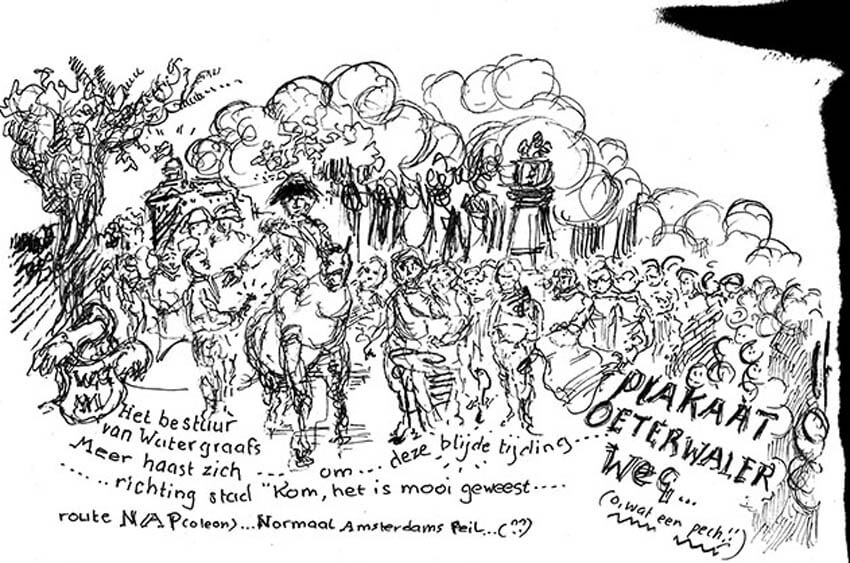 Het bestuur
van Watergraafs
Meer haast zich .... om ... deze blijde tijding ....
...... richting stad "Kom, het is mooi geweest ....
route NAP(oleon)...Normaal Amsterdams Peil...(!?!)
PLAKAAT
OETERWALER
WEG...
(o, wat een pech!!)